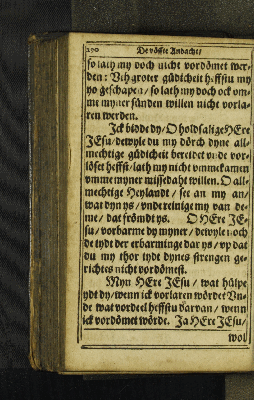 290 De vöffte Andacht/
so lath my doch nicht vordömet wer-
den: Vth groter güdicheit heffstu my
yo geschapen/ so lath my doch ock vm-
me myner sünden willen nicht vorla-
ren werden.
Ick bidde dy/ O holdsalige HEre
JEsu/ dewyle du my dörch dyne all-
mechtige güdicheit bereidet vnde vor-
löset heffst/ lath my nicht vmmekamen
vmme myner missedaht willen. O all-
mechtige Heylandt/ see an my an/
wat dyn ys/ vnde reinige my van de-
me/ dat frömdt ys. O HEre JE-
su/ vorbarme dy myner/ dewyle noch
de tydt der erbarminge dar ys/ vp dat
du my thor tydt dynes strengen ge-
richtes nicht vordömest.
Myn HEre JEsu/ wat hülpe
ydt dy/ wenn ick vorlaren wördet Vn-
de wat vordeel heffstu darvan/ wenn
ick vordömet wörde. Ja HEre JEsu/
wol